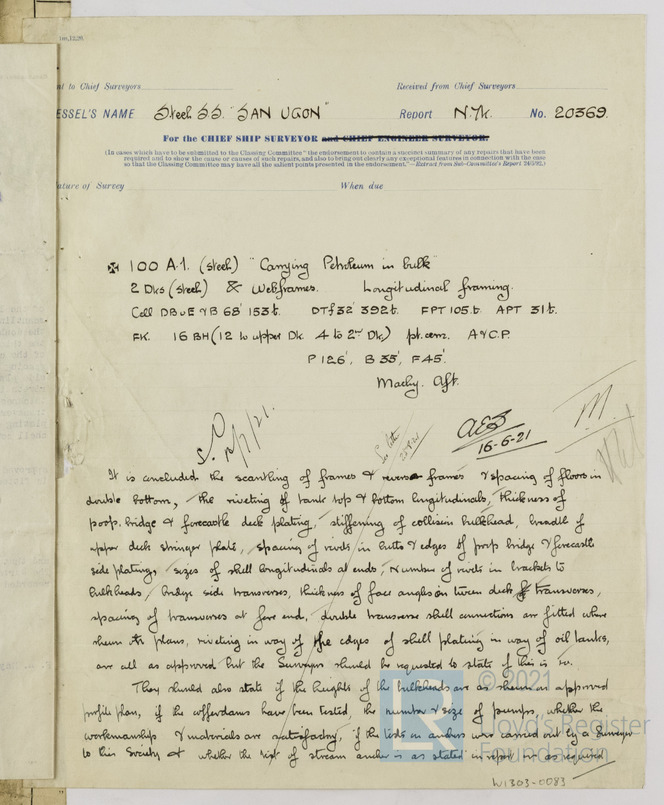 nt to Chief Surveyors
Received from Chief Surveyors
ESSEL'S NAME Steel SS. "SAN UGON" Report N.Yk. No. 20369.
For the CHIEF SHIP SURVEYOR and CHIEF ENGINEER SURVEYOR.
(In cases which have to be submitted to the Classing Committee "the endorsement to contain a succinct summary of any repairs that have been
required and to show the cause or causes of such repairs, and also to bring out clearly any exceptional features in connection with the case
so that the Classing Committee may have all the salient points presented in the endorsement."—Extract from Sub-Committee's Report 24/5/92.)
ature of Survey When due
✠ 100 A.1. (steel) "Carrying Petroleum in bulk"
2 Dks (steel) & Webframes. Longitudinal framing.
Cell DB u E & B 68' 153t. DTf 32' 392t. FPT 105t. APT 31t.
FK. 16 BH (12 to upper Dk. 4 to 2nd Dk) pt. cem. A & C.P.
P 126', B 35', F 45'.
Machy. Aft.
16-6-21
It is concluded the scantling of frames & reverse frames & spacing of floors in
double bottom, the riveting of tank top & bottom longitudinals, thickness of
poop, bridge & forecastle deck plating, stiffening of collision bulkhead, breadth of
upper deck stringer plate, spacing of rivets in butts & edges of poop bridge & forecastle
side plating, sizes of shell longitudinals at ends, number of rivets in brackets to
bulkheads, bridge side transverses, thickness of face angles on tween deck transverses,
spacing of transverses at fore end, double transverse shell connections are fitted where
shewn on plans, riveting in way of the edges of shell plating in way of oil tanks,
are all as approved but the Surveyors should be requested to state if this is so.
They should also state if the heights of the bulkheads are as shewn on approved
profile plan, if the cofferdams have been tested, the number & size of pumps, whether the
workmanship & materials are satisfactory, if the tests on anchors were carried out by a Surveyor
to this Society & whether the wt of stream anchor is as stated in report or as required
© 2021
Lloyd's Register
Foundation
W1303-0083